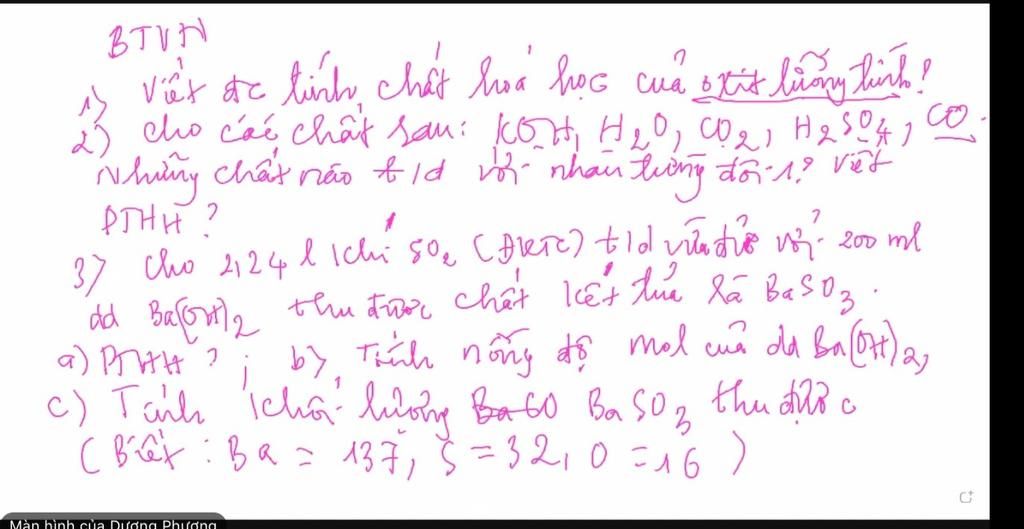 BTVN
1) Viết đc tính chất hoá học của oxit lưỡng tính!
2) cho các chất sau: KOH, H2O, CO2, H2SO4, CO.
Những chất nào t/d với nhau từng đôi 1? Viết
PTHH?
3) Cho 2,24 l khí SO2 (ĐKTC) t/d vừa đủ với 200 ml
dd Ba(OH)2 thu được chất kết tủa là BaSO3.
a) PTHH? ; b) Tính nồng độ mol của dd Ba(OH)2,
c) Tính khối lượng BaSO3 thu được
(Biết: Ba = 137, S = 32, O = 16)
Màn hình của Dương Phương